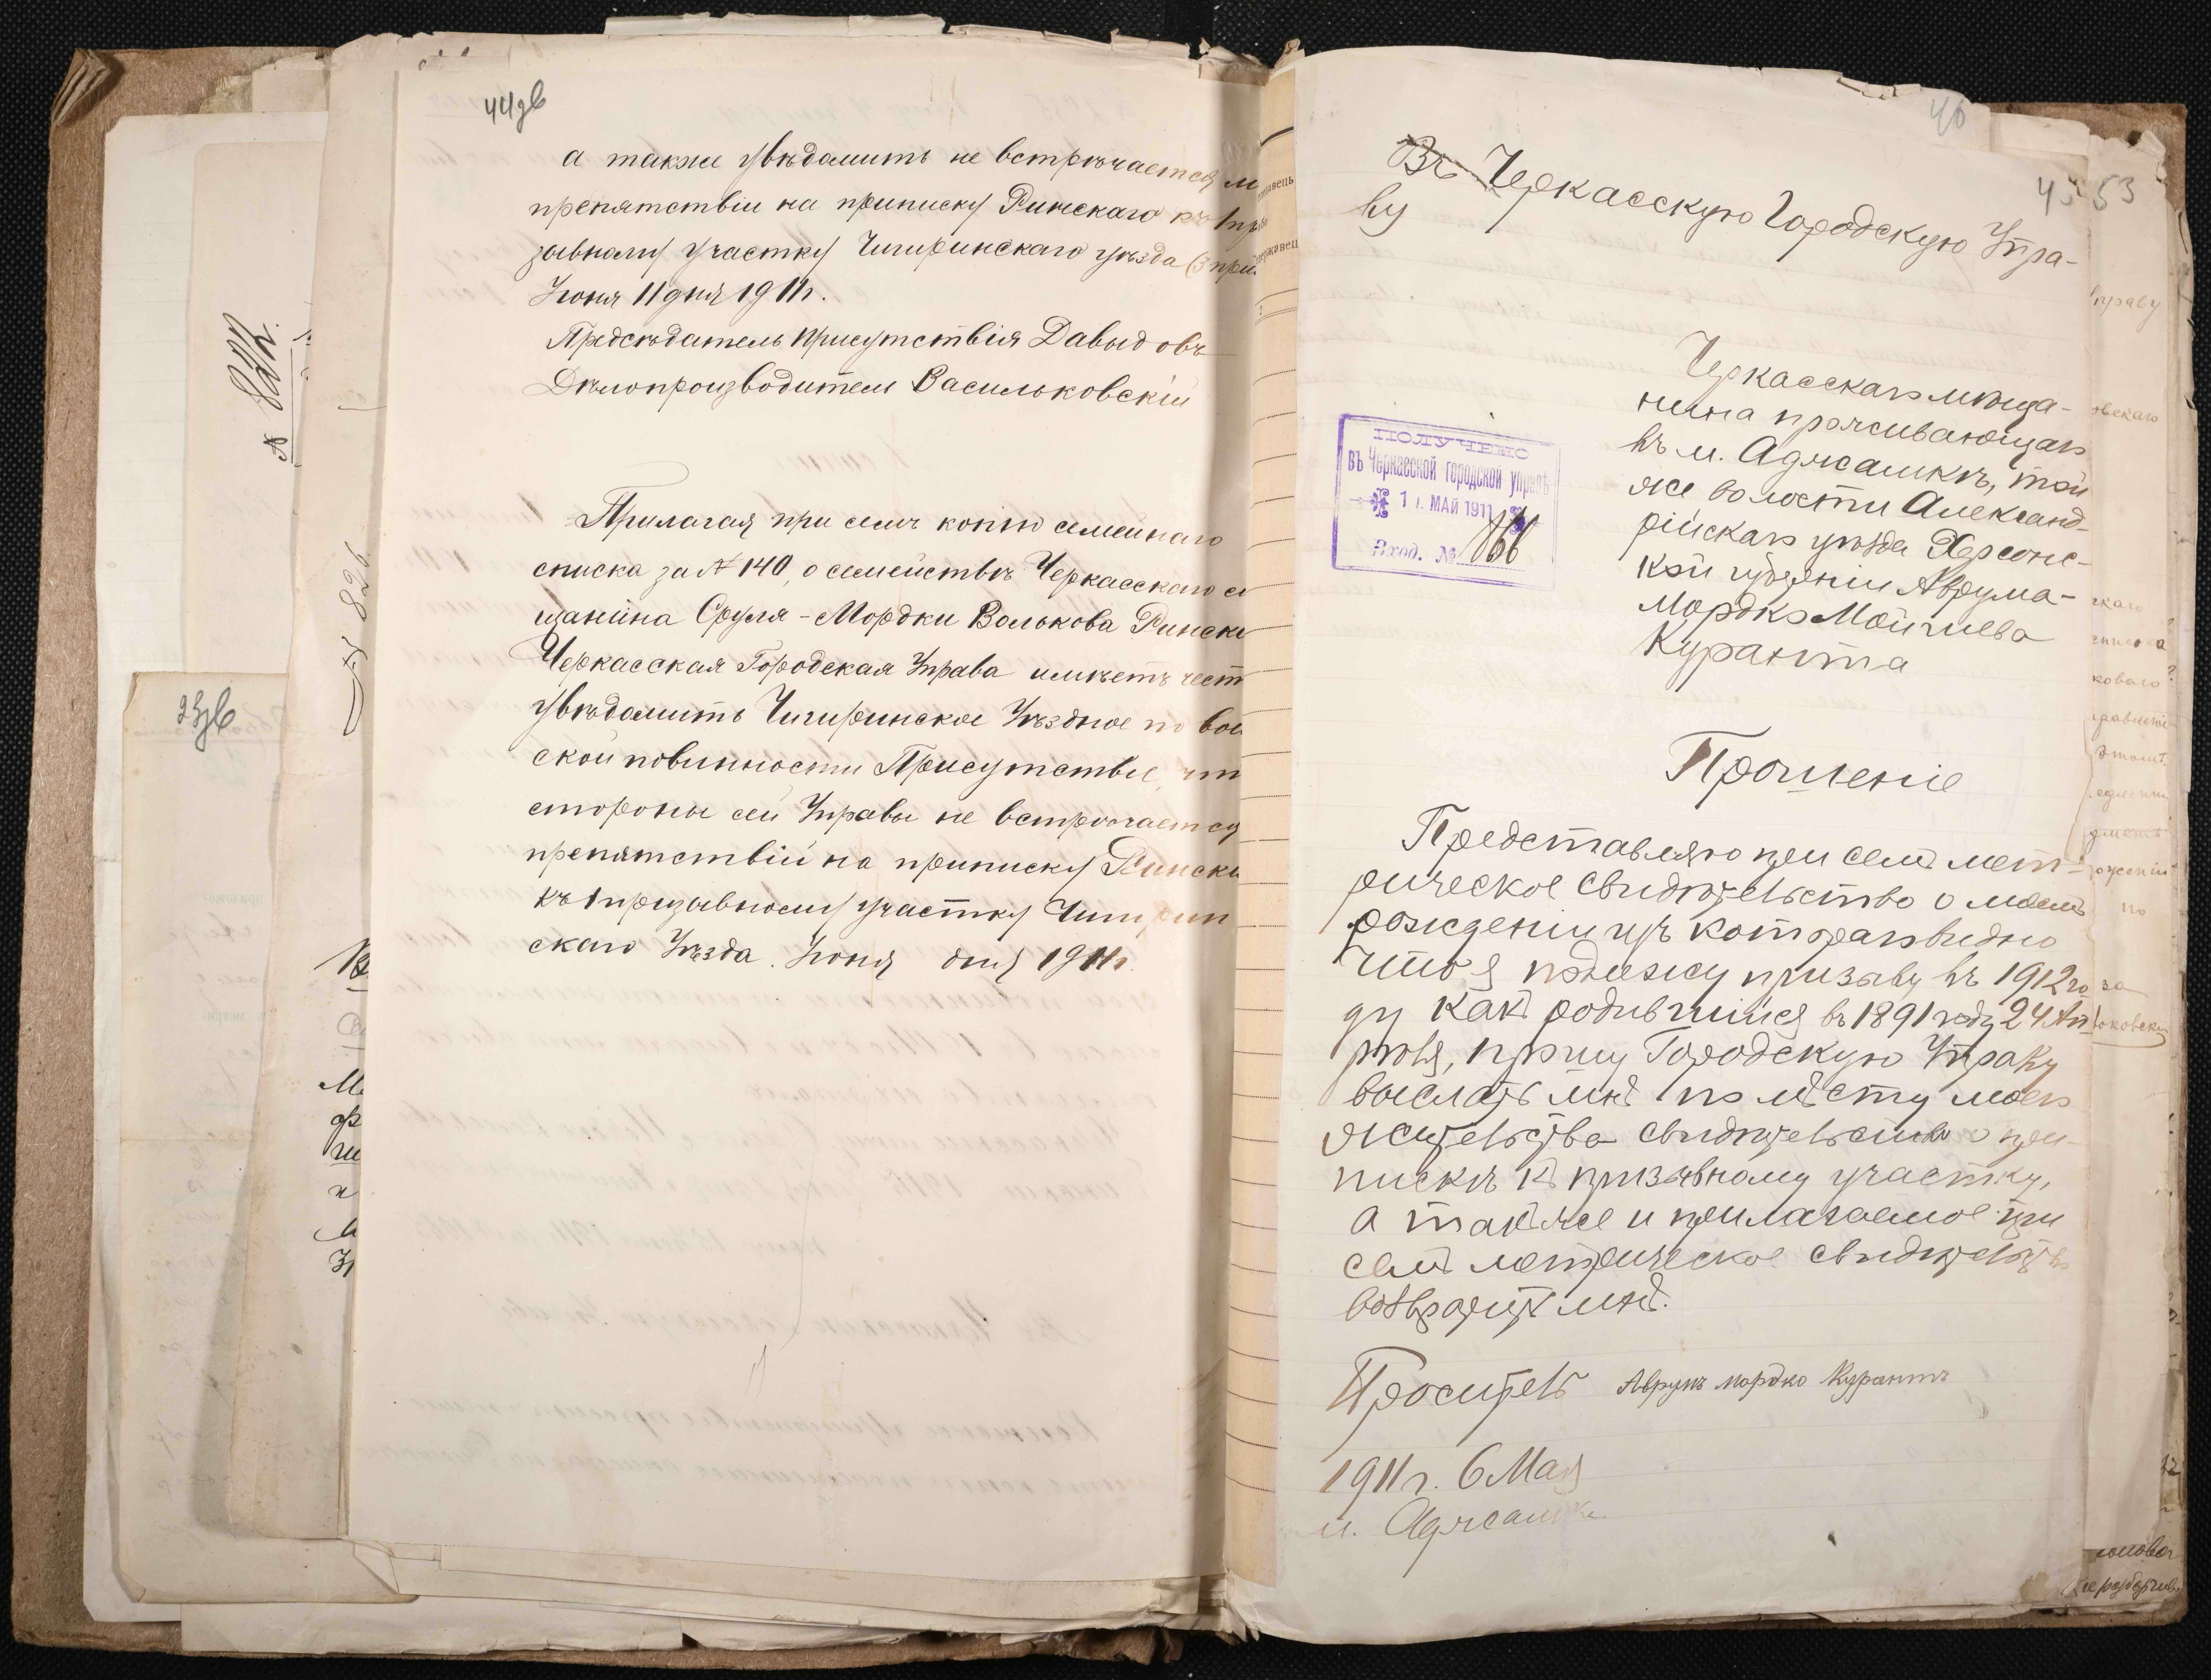 44дв
а также увѣдомить не встрѣчается ли
препятствіи на приписку Ринскаго къ 1 при
зывному участку Чигиринскаго уѣзда
Іюня 11 дня 1911 г.
Предсѣдатель Присутствія Давыдовъ
Дѣлопроизводитель Васильковскій
Прилагая при семъ копію семейнаго
списка за № 140, о семействѣ Черкасскаго
щанина Сруля-Мордки Волькова Ринск
Черкасская Городская Управа имѣетъ чест
увѣдомить Чигиринское Уѣздное по вои
ской повинности Присутствіе, что
стороны сей Управы не встрѣчается
препятствій на приписку Ринск
къ 1 призывному участку Чигирин
скаго Уѣзда. Іюня дня 1911 г.
№ 8422.
№ 826
23дв
46
45 53
Въ Черкасскую Городскую Упра-
ву
Черкасскаго мѣща-
нина проживающаго
въ м. Аджамкѣ, той
же волости Александ-
рійскаго уѣзда Херсонс-
кой губерніи Аврума-
Мордко Мойшева
Куранта
ПОЛУЧЕНО
въ Черкасской городской управѣ
МАЙ 1911
Вход. №
Прошеніе
Представляю при семъ мет-
рическое свидѣтельство о моемъ
рожденіи изъ котораго видно
что я подлежу призыву въ 1912 го
ду какъ родившійся въ 1891 году 24 Ап
рѣля, прошу Городскую Управу
выслать мнѣ по мѣсту моего
жительства свидѣтельство о при-
пискѣ къ призывному участку,
а также и прилагаемое при
семъ метрическое свидѣтельство
возвратить мнѣ.
Проситель Аврумъ мордко Курантъ
1911 г. 6 Мая
м. Аджамка